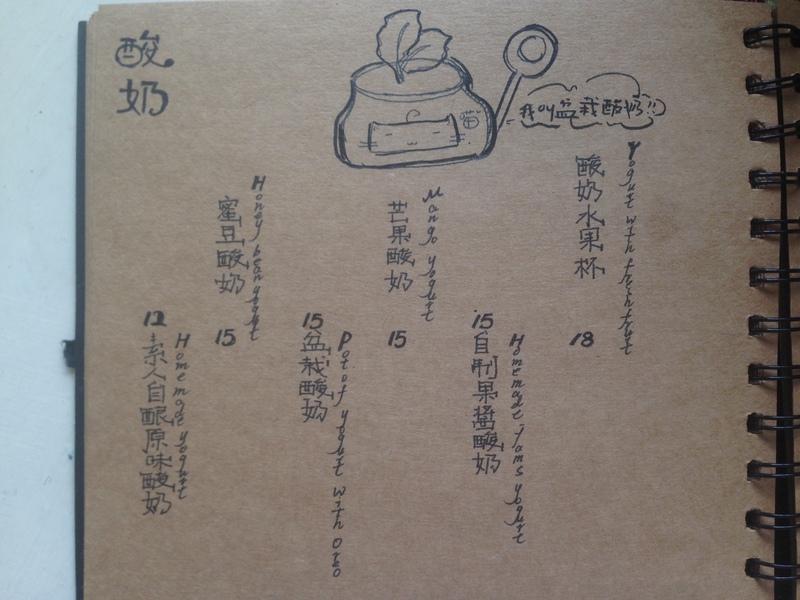 酸奶
喵
我叫盆栽酸奶!!
酸奶水果杯
Yogurt with freshfruit
18
15
自制果醬酸奶
Homemade Jams yogurt
芒果酸奶
Mango yogurt
15
15
盆栽酸奶
Pot of yogurt with oreo
蜜豆酸奶
Honey bean yogurt
15
12
素人自酿原味酸奶
Homemade yogurt